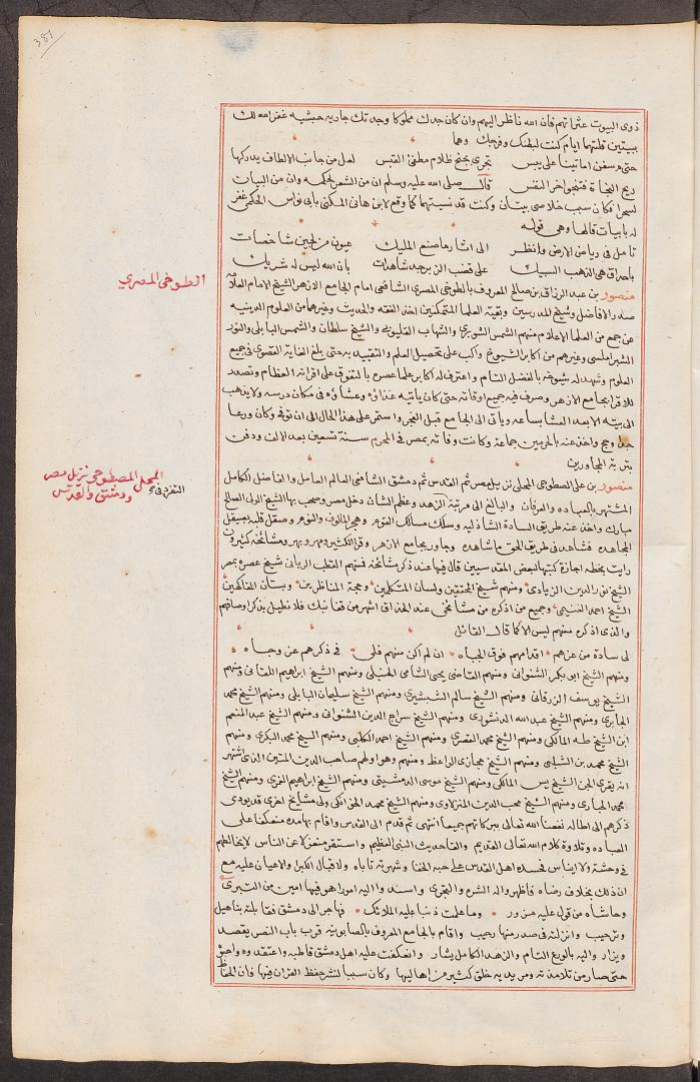 387
ذوى البيوت عثراتهم فان الله ناظر اليهم وان كان جدك مملوكا وجدتك جارية حبشية غفر الله لك
ببيتين قلتهما ايام كنت لبطنك وفرجك وهما
حتى سفن امانينا على يبس تجرى بجنح ظلام مطفئ القبس لعل من جانب الالطاف يدركها
ريح النجاة فتنجو اخر النفس قال صلى الله عليه وسلم ان من الشعر لحكمه وان من البيان
لسحرا فكان سبب خلاصى بيتان وكنت قد نسيتهما كما وقع لابن هانى المكنى بابى نواس الحكمى غفر
له بابيات قالها وهى قوله
تامل فى رياض الارض وانظر الى اثار ما صنع المليك عيون من لجين شاخصات
باحداق هى الذهب السبيك على قضب الزبرجد شاهدات بان الله ليس له شريك
الطوخى المصري
منصور بن عبد الرزاق بن صالح المعروف بالطوخى المصرى الشافعى امام الجامع الازهر الشيخ الامام العلامة
صدر الافاضل وشيخ المدرسين وبقية العلما المتمكنين اخذ الفقه والحديث وغيرهما من العلوم الدينيه
عن جمع من العلما الاعلام منهم الشمس الشوبرى والشهاب القليوبى والشيخ سلطان والشمس البابلى والنور
الشبراملسى وغيرهم من اكابر الشيوخ واكب على تحصيل العلم والتقييد به حتى بلغ الغاية القصوى فى جميع
العلوم وشهد له شيوخه بالفضل التام واعترف له اكابر علما عصره بالتفوق على اقرانه العظام وتصدر
للاقرا بجامع الازهر وصرف فيه جميع اوقاته حتى كان ياتيه غذاؤه وعشاؤه فى مكان درسه ولا يذهب
الى بيته الا بعد العشا بساعه وياتى الى الجامع قبل الفجر واستمر على هذا الحال الى ان توفى وكان ورعا
جدا وحج واخذ عنه بالحرمين جماعة وكانت وفاته بمصر فى المحرم سنة تسعين بعد الالف ودفن
بتربة المجاورين
المحلى المصطوحى نزيل مصر
ودمشق والقدس
منصور بن على السطوحى المحلى نزيل مصر ثم القدس ثم دمشق الشافعى العالم العامل والفاضل الكامل
المشتهر بالعباده والعرفان والبالغ الى مرتبة الزهد وعظم الشان دخل مصر وصحب بها الشيخ الولى الصالح
مبارك واخذ عنه طريق السادة الشاذليه وسلك مسالك القوم وهجر المالوف والنوم وصقل قلبه بصيقل
المجاهده فشاهد فى طريق الحق ما شاهده وجاور بجامع الازهر وقرا الكثير ومهر وبهر ومشائخه كثيرون
رايت بخطه اجازة كتبها لبعض المقدسيين قال فيها عند ذكر مشائخه فمنهم القطب الربانى شيخ عصره بمصر
الشيخ نور الدين الزيادى ومنهم شيخ المحققين ولسان المتكلمين وحجة المناظرين وبستان المفاكهين
الشيخ احمد الغنيمى وجميع من اذكره من مشائخى عند الحذاق اشهر من قفا نبك فلا نطيل بذكر اوصافهم
والذى اذكره منهم ليس الا كما قال القائل
لى سادة من عزهم اقدامهم فوق الجباه ان لم اكن منهم فلى فى ذكرهم عز وجاه
ومنهم الشيخ ابو بكر الشنوانى ومنهم القاضى يحيى الشامى الحنبلى ومنهم الشيخ ابراهيم اللقانى ومنهم
الشيخ يوسف الزرقانى ومنهم الشيخ سالم الشبشيرى ومنهم الشيخ سليمان البابلى ومنهم الشيخ محمد
الجابرى ومنهم الشيخ عبد الله الدنشورى ومنهم الشيخ سراج الدين الشنوانى ومنهم الشيخ عبد المنعم
ابن الشيخ طه المالكى ومنهم الشيخ محمد القصرى ومنهم الشيخ احمد الكلبى ومنهم الشيخ محمد البكرى ومنهم
الشيخ محمد بن الشلبى ومنهم الشيخ حجازى الواعظ ومنهم وهو اولهم صاحب الدين المتين الذى اشتهر
انه يقرى الجن الشيخ يس المالكى ومنهم الشيخ موسى الدمشيتى ومنهم الشيخ ابراهيم الغزى ومنهم الشيخ
محمد الجبارى ومنهم الشيخ محب الدين المنزلاوى ومنهم الشيخ محمد الخوانكى ولى مشايخ اخرى قد يودى
ذكرهم الى اطاله نفعنا الله تعالى ببركاتهم جميعا انتهى ثم قدم الى القدس واقام بها مده منعكفا على
العباده وتلاوة كلام الله تعالى القديم والاحاديث النبى العظيم واستقر منعزلا عن الناس لا يخالطهم
فى وحشة ولا ايناس فحسده اهل القدس على حبه الخفا وشهرته تاباه ولاقبال الكبرا والاعيان عليه مع
ان ذلك بخلاف رضاه فاظهروا له الشره والتجرى واسندوا اليه امورا هو فيها امين من التبرى
وحاشاه من قول عليه مزور وما علمت ذنبا عليه الملائك فهاجر الى دمشق فقابلته بتاهيل
وترحيب وانزلته فى صدر منها رحيب واقام بالجامع المعروف بالصابونية قرب باب النصر يقصد
ويزار واليه بالورع التام والزهد الكامل يشار وانعكفت عليه اهل دمشق قاطبه واعتقدوه واحبوه
حتى صار من تلامذته ومريديه خلق كثير من اهاليها وكان سببا لنشر حفظ القران فيها فان الحفاظ